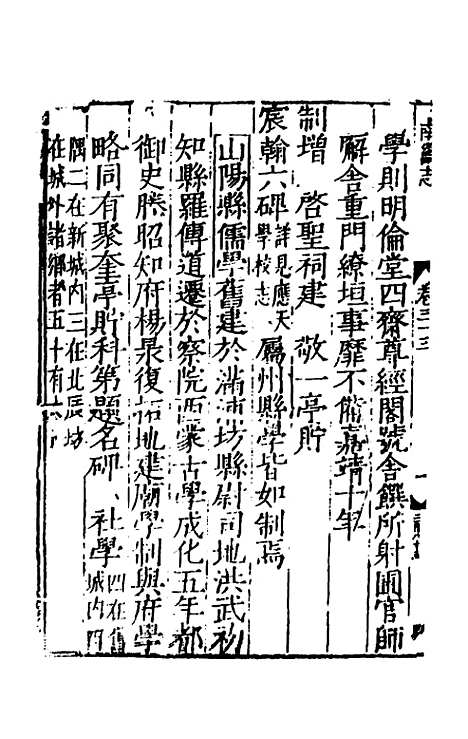 南畿志
卷三十三
學則明倫堂四齋尊經閣號舍饌所射圃官師
廨舍重門繚垣事靡不備嘉靖十年
制增 啓聖祠建 敬一亭貯
宸翰六碑詳見應天學校志屬州縣學皆如制焉
山陽縣儒學舊建於滿浦坊縣尉司地洪武初
知縣羅傳道遷於察院西蒙古學成化五年都
御史滕昭知府楊杲復拓地建廟學制與府學
略同有聚奎亭貯科第題名碑 社學四在舊城内四
隅二在新城内三在北辰坊
在城外諸鄉者五十有六